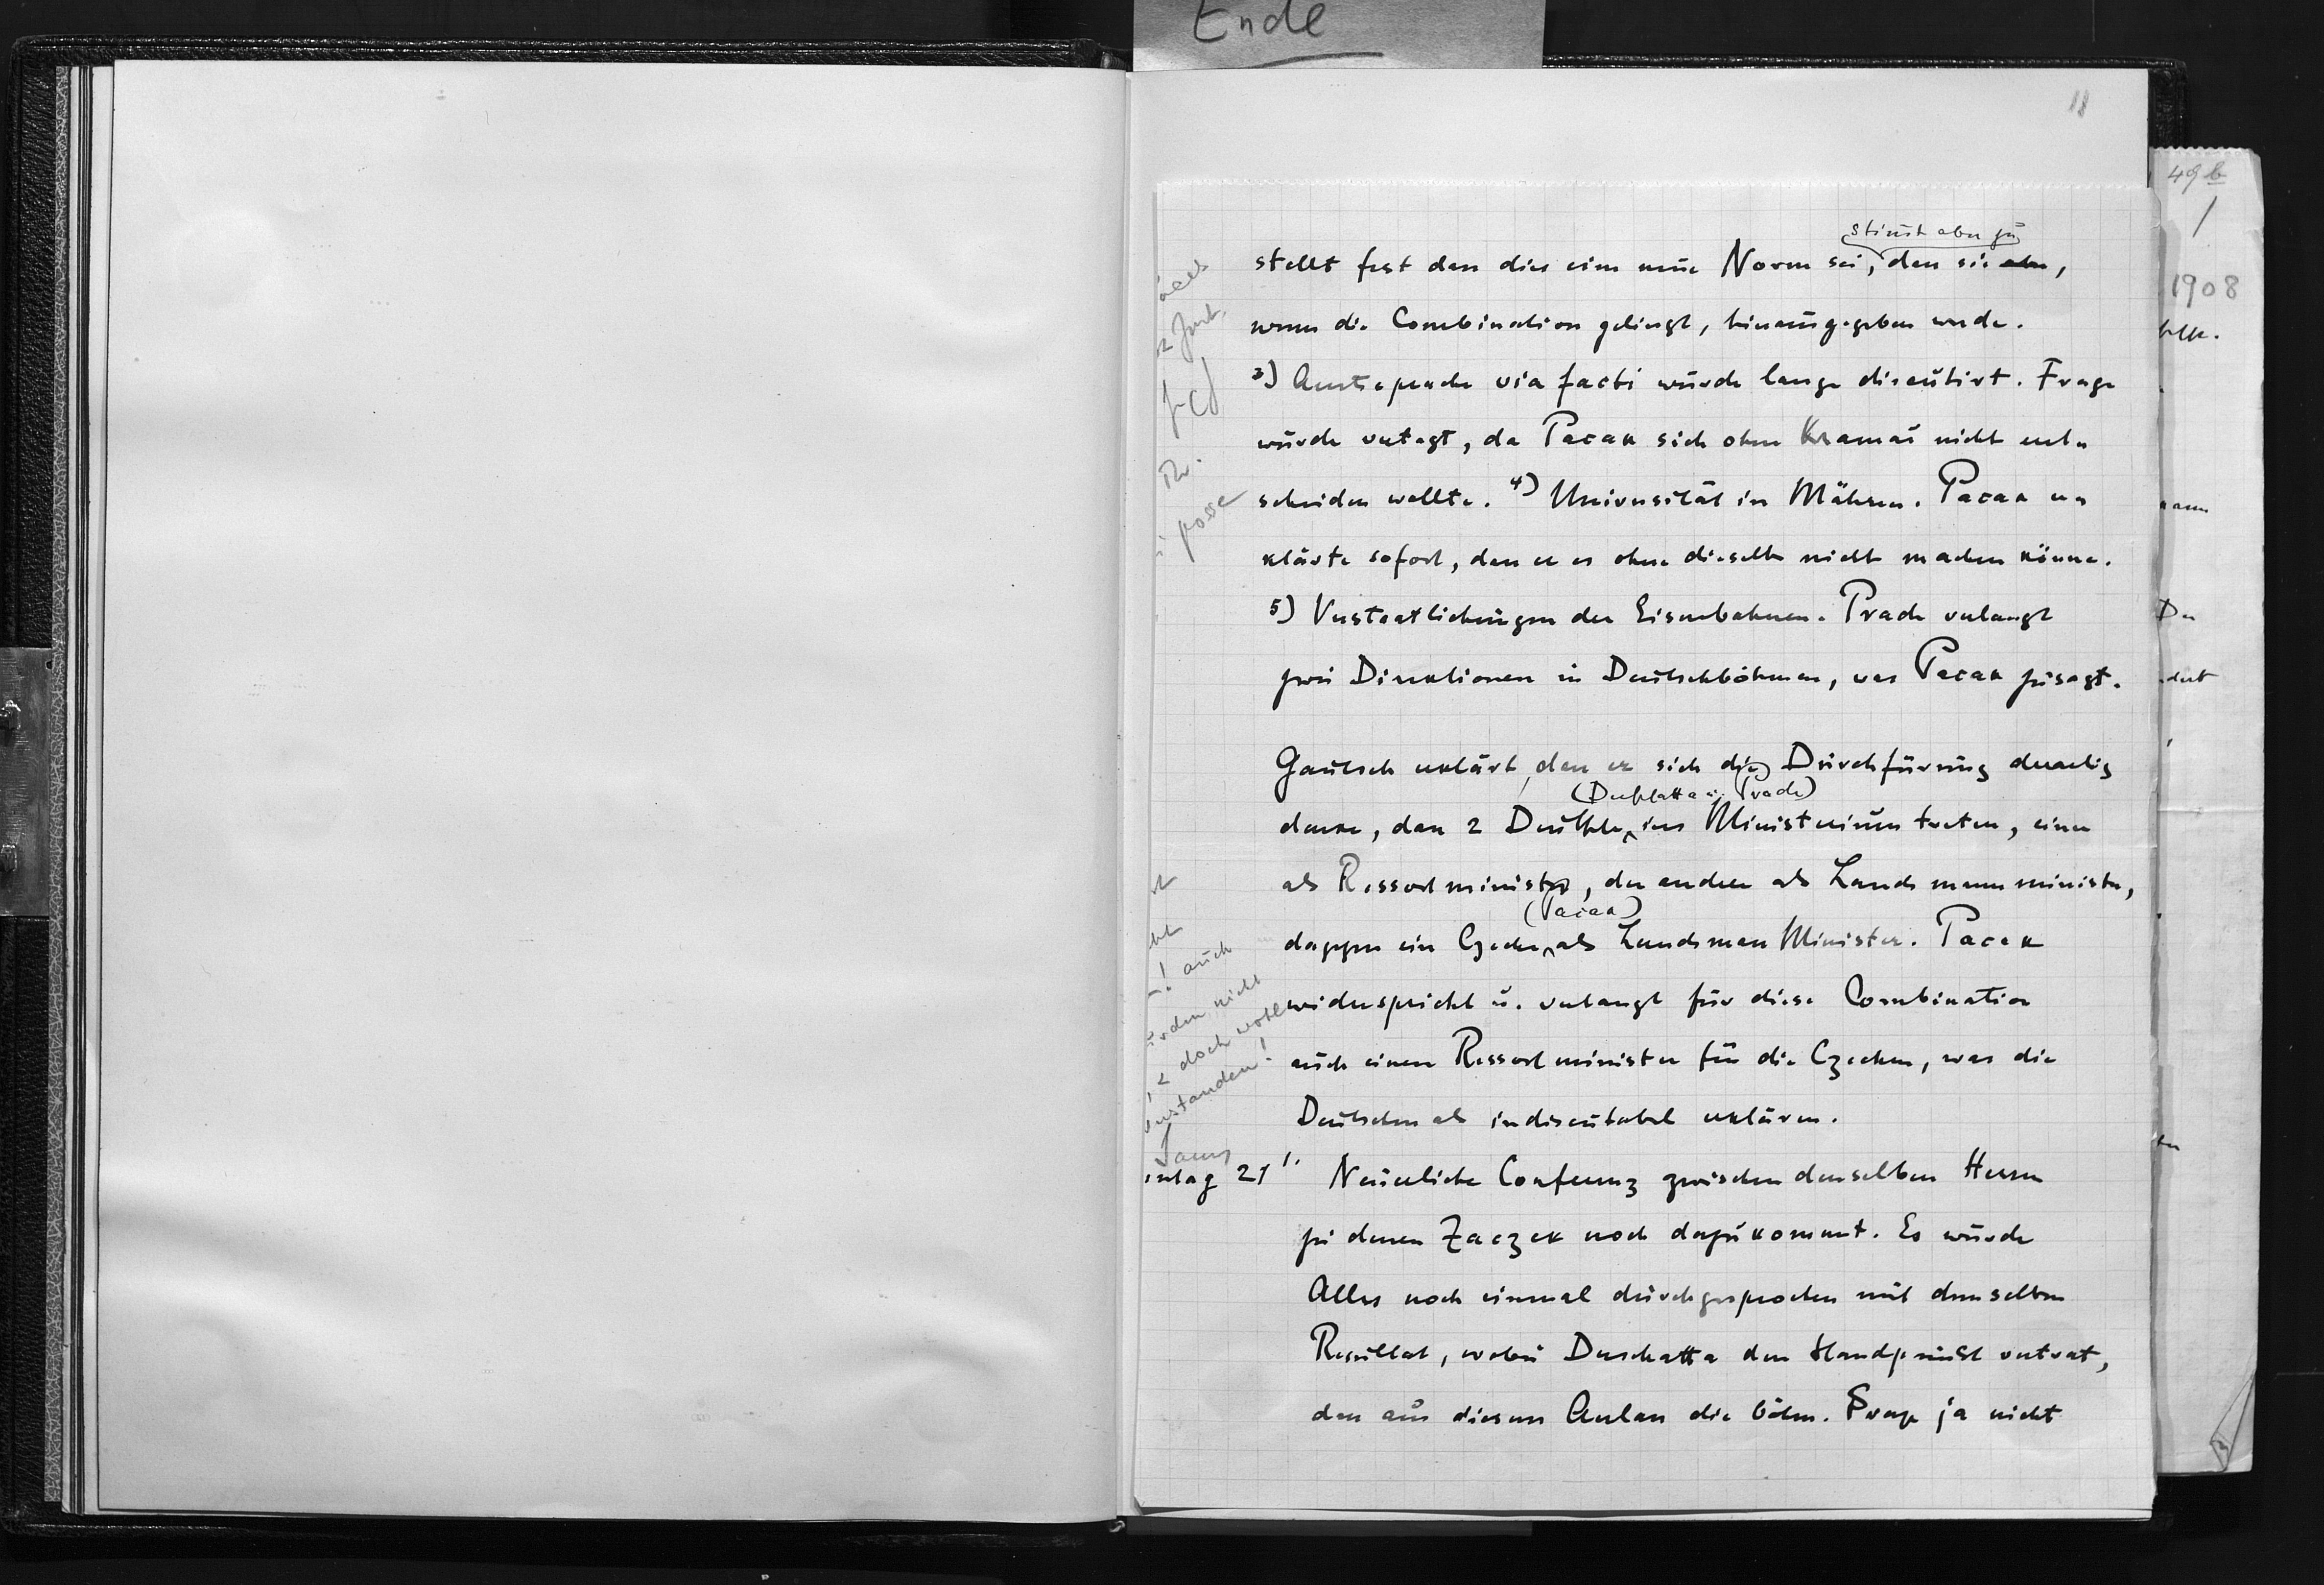 Ende
18
49b
/
1908
stimt aber zu
stellt fest dass dies eine neue Norm sei, dass sie aber,
wenn die Combination gelingt, hinausgegeben werde.
3) Amtssprache via facti wurde lange discutirt. Frage
wurde vertagt, da Pacak sich ohne Kramař nicht ent=
scheiden wollte. 4) Universität in Mähren. Pacak er=
klärte sofort, dass er es ohne dieselbe nicht machen könne.
5) Verstaatlichungen der Eisenbahnen. Prade verlangt
zwei Direktionen in Deutschböhmen, was Pacak zusagt.
Gautsch erklärt, dass er sich die Durchfürung derartig
(Derschatta u. Prade)
denke, dass 2 Deutsche ins Ministerium treten, einer
als Ressortminister, der andere als Landsmannminister,
(Pacak)
dagegen ein Czeche als Landsman Minister. Pacak
widerspricht u. verlangt für diese Combination
auch einen Ressortminister für die Czechen, was die
Deutschen als indiscutabel erklären.
ntag 21 1. Neuerliche Conferenz zwischen denselben Herren
zu denen Zaczek noch dazukommt. Es wurde
Alles noch einmal durchgesprochen mit demselben
Resultat, wobei Derschatta den Standpunkt vertrat,
dass aus diesem Anlass die böhm. Frage ja nicht
! auch
nicht
doch wohl
verstanden!